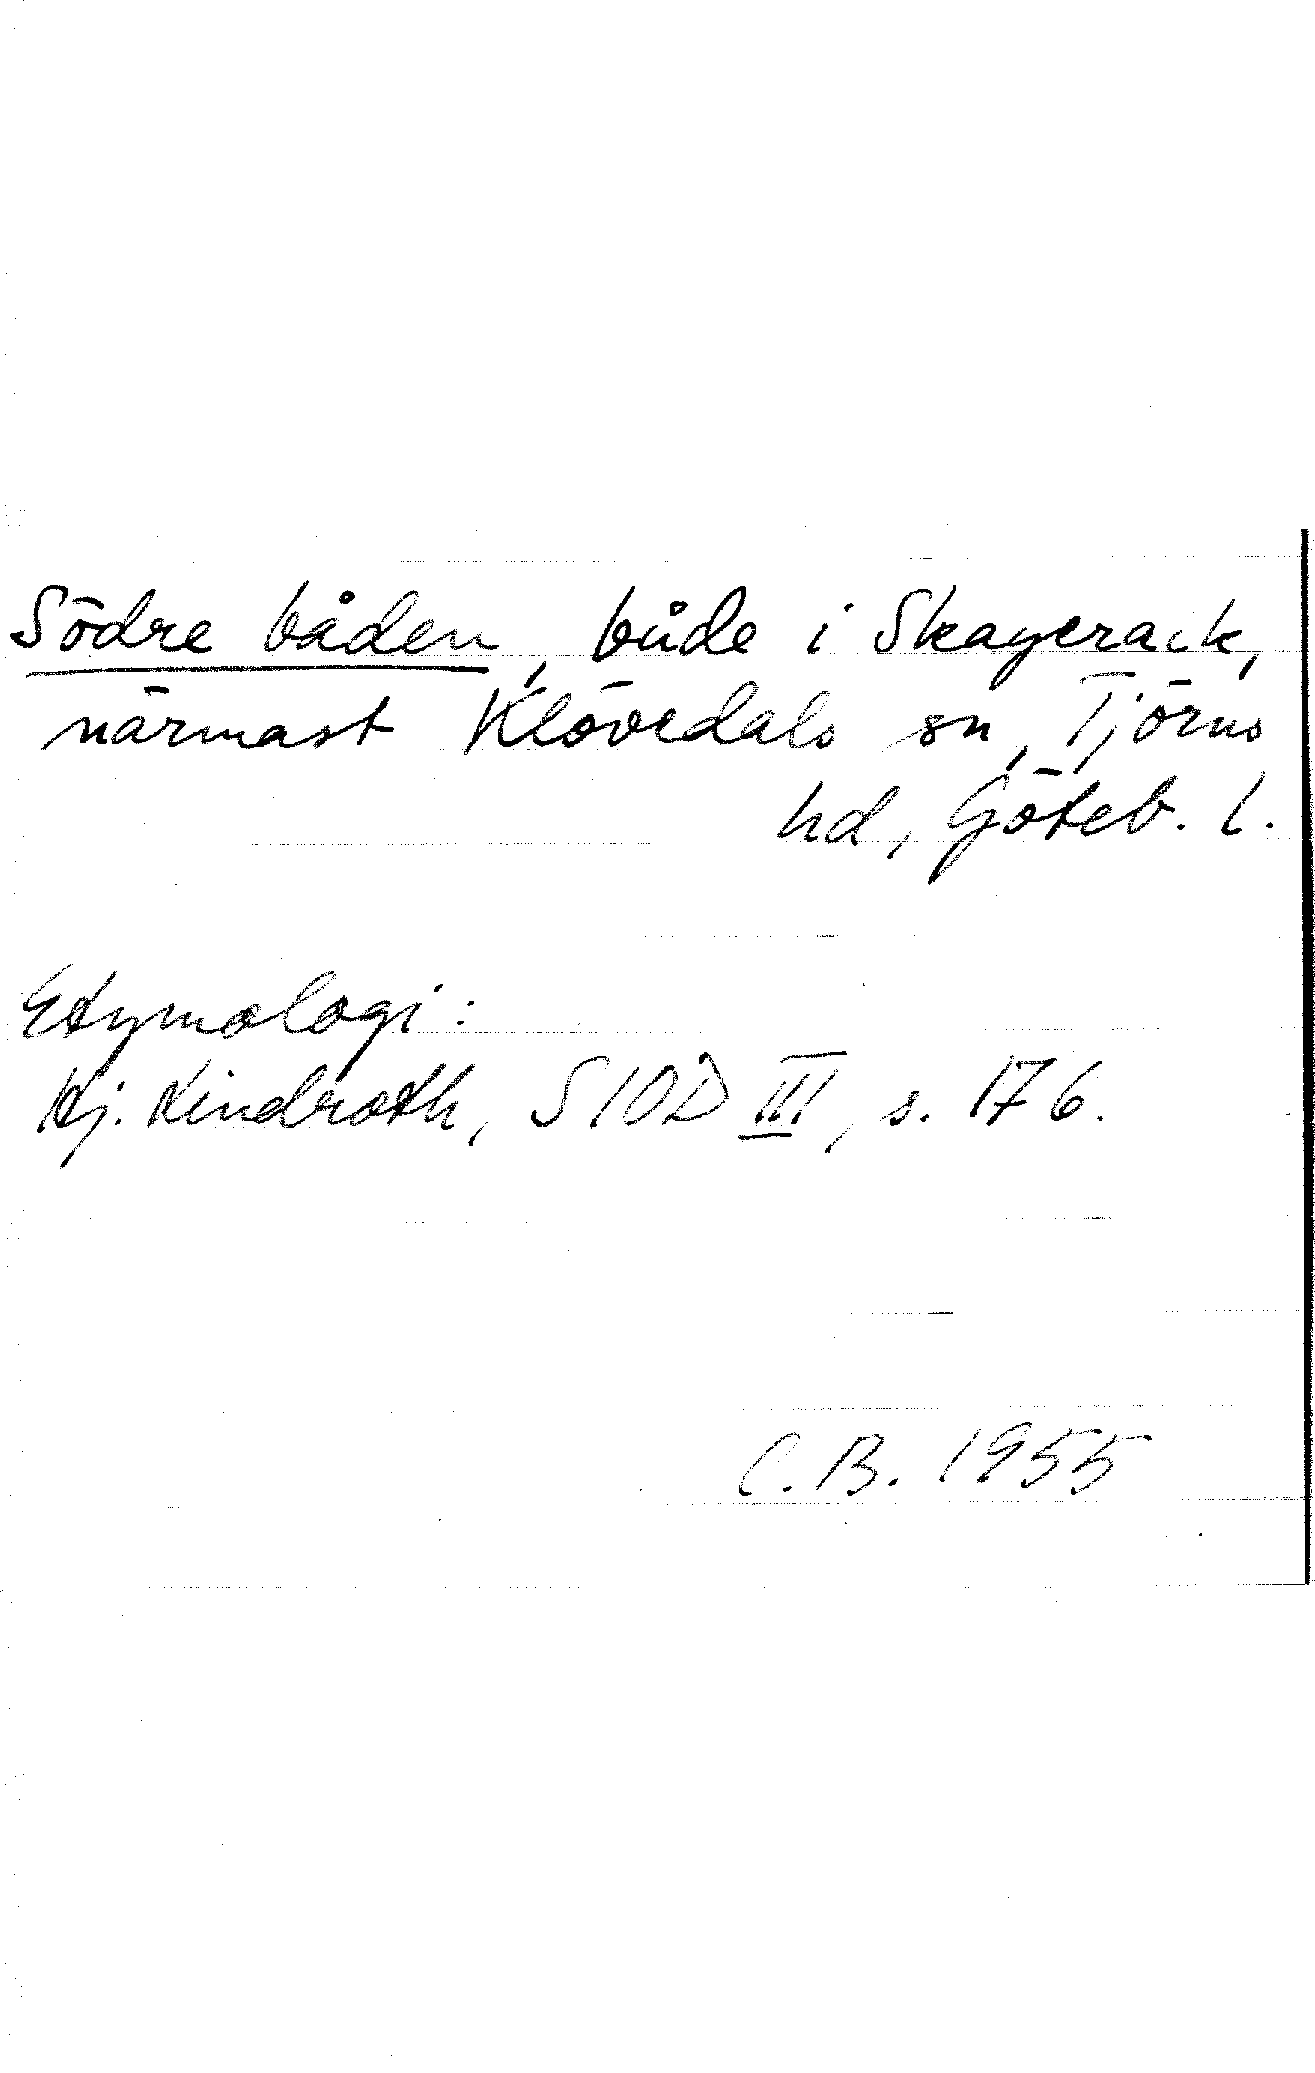 Södre båden, både i Skagerack,
närmast Klövedals sn, Tjörns
hd, Göteb. l.
Etymologi:
Hj. Lindroth, SIOD III, s. 176.
C.B. 1955